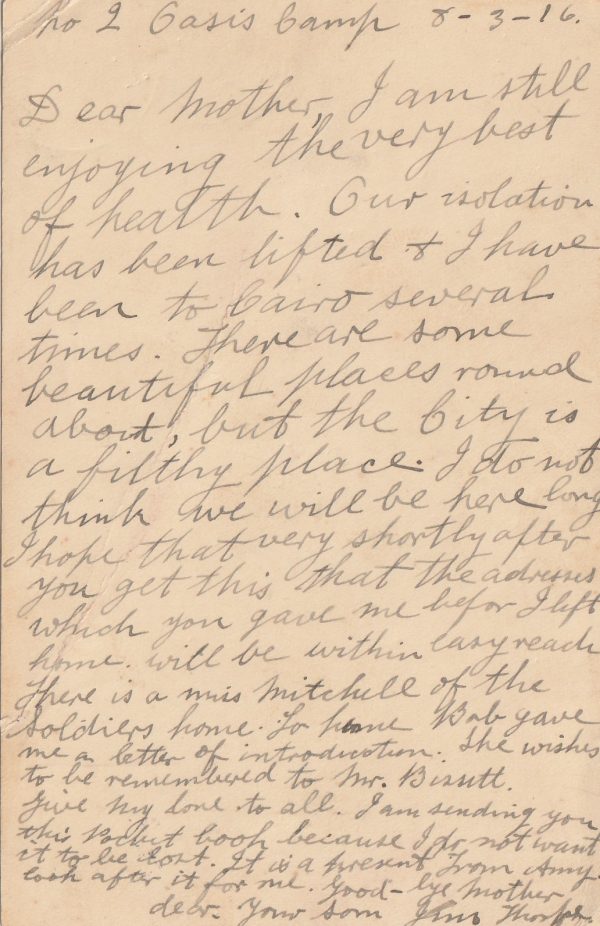 No 2 Oasis Camp 8-3-16.
Dear Mother, I am still
enjoying the very best
of health. Our isolation
has been lifted & I have
been to Cairo several
times. There are some
beautiful places round
about, but the City is
a filthy place. I do not
think we will be here long
I hope that very shortly after
you get this that the adresses
which you gave me befor I left
home. will be within easy reach
There is a miss Mitchell of the
Soldiers home. To Bob gave
me a letter of introduction. She wishes
to be remembered to Mr.
Give my love to all. I am sending you
this Pocket book because I do not want
it to be lost. It is a present from Amy.
look after it for me. Good-bye Mother
dear. Your son Jim